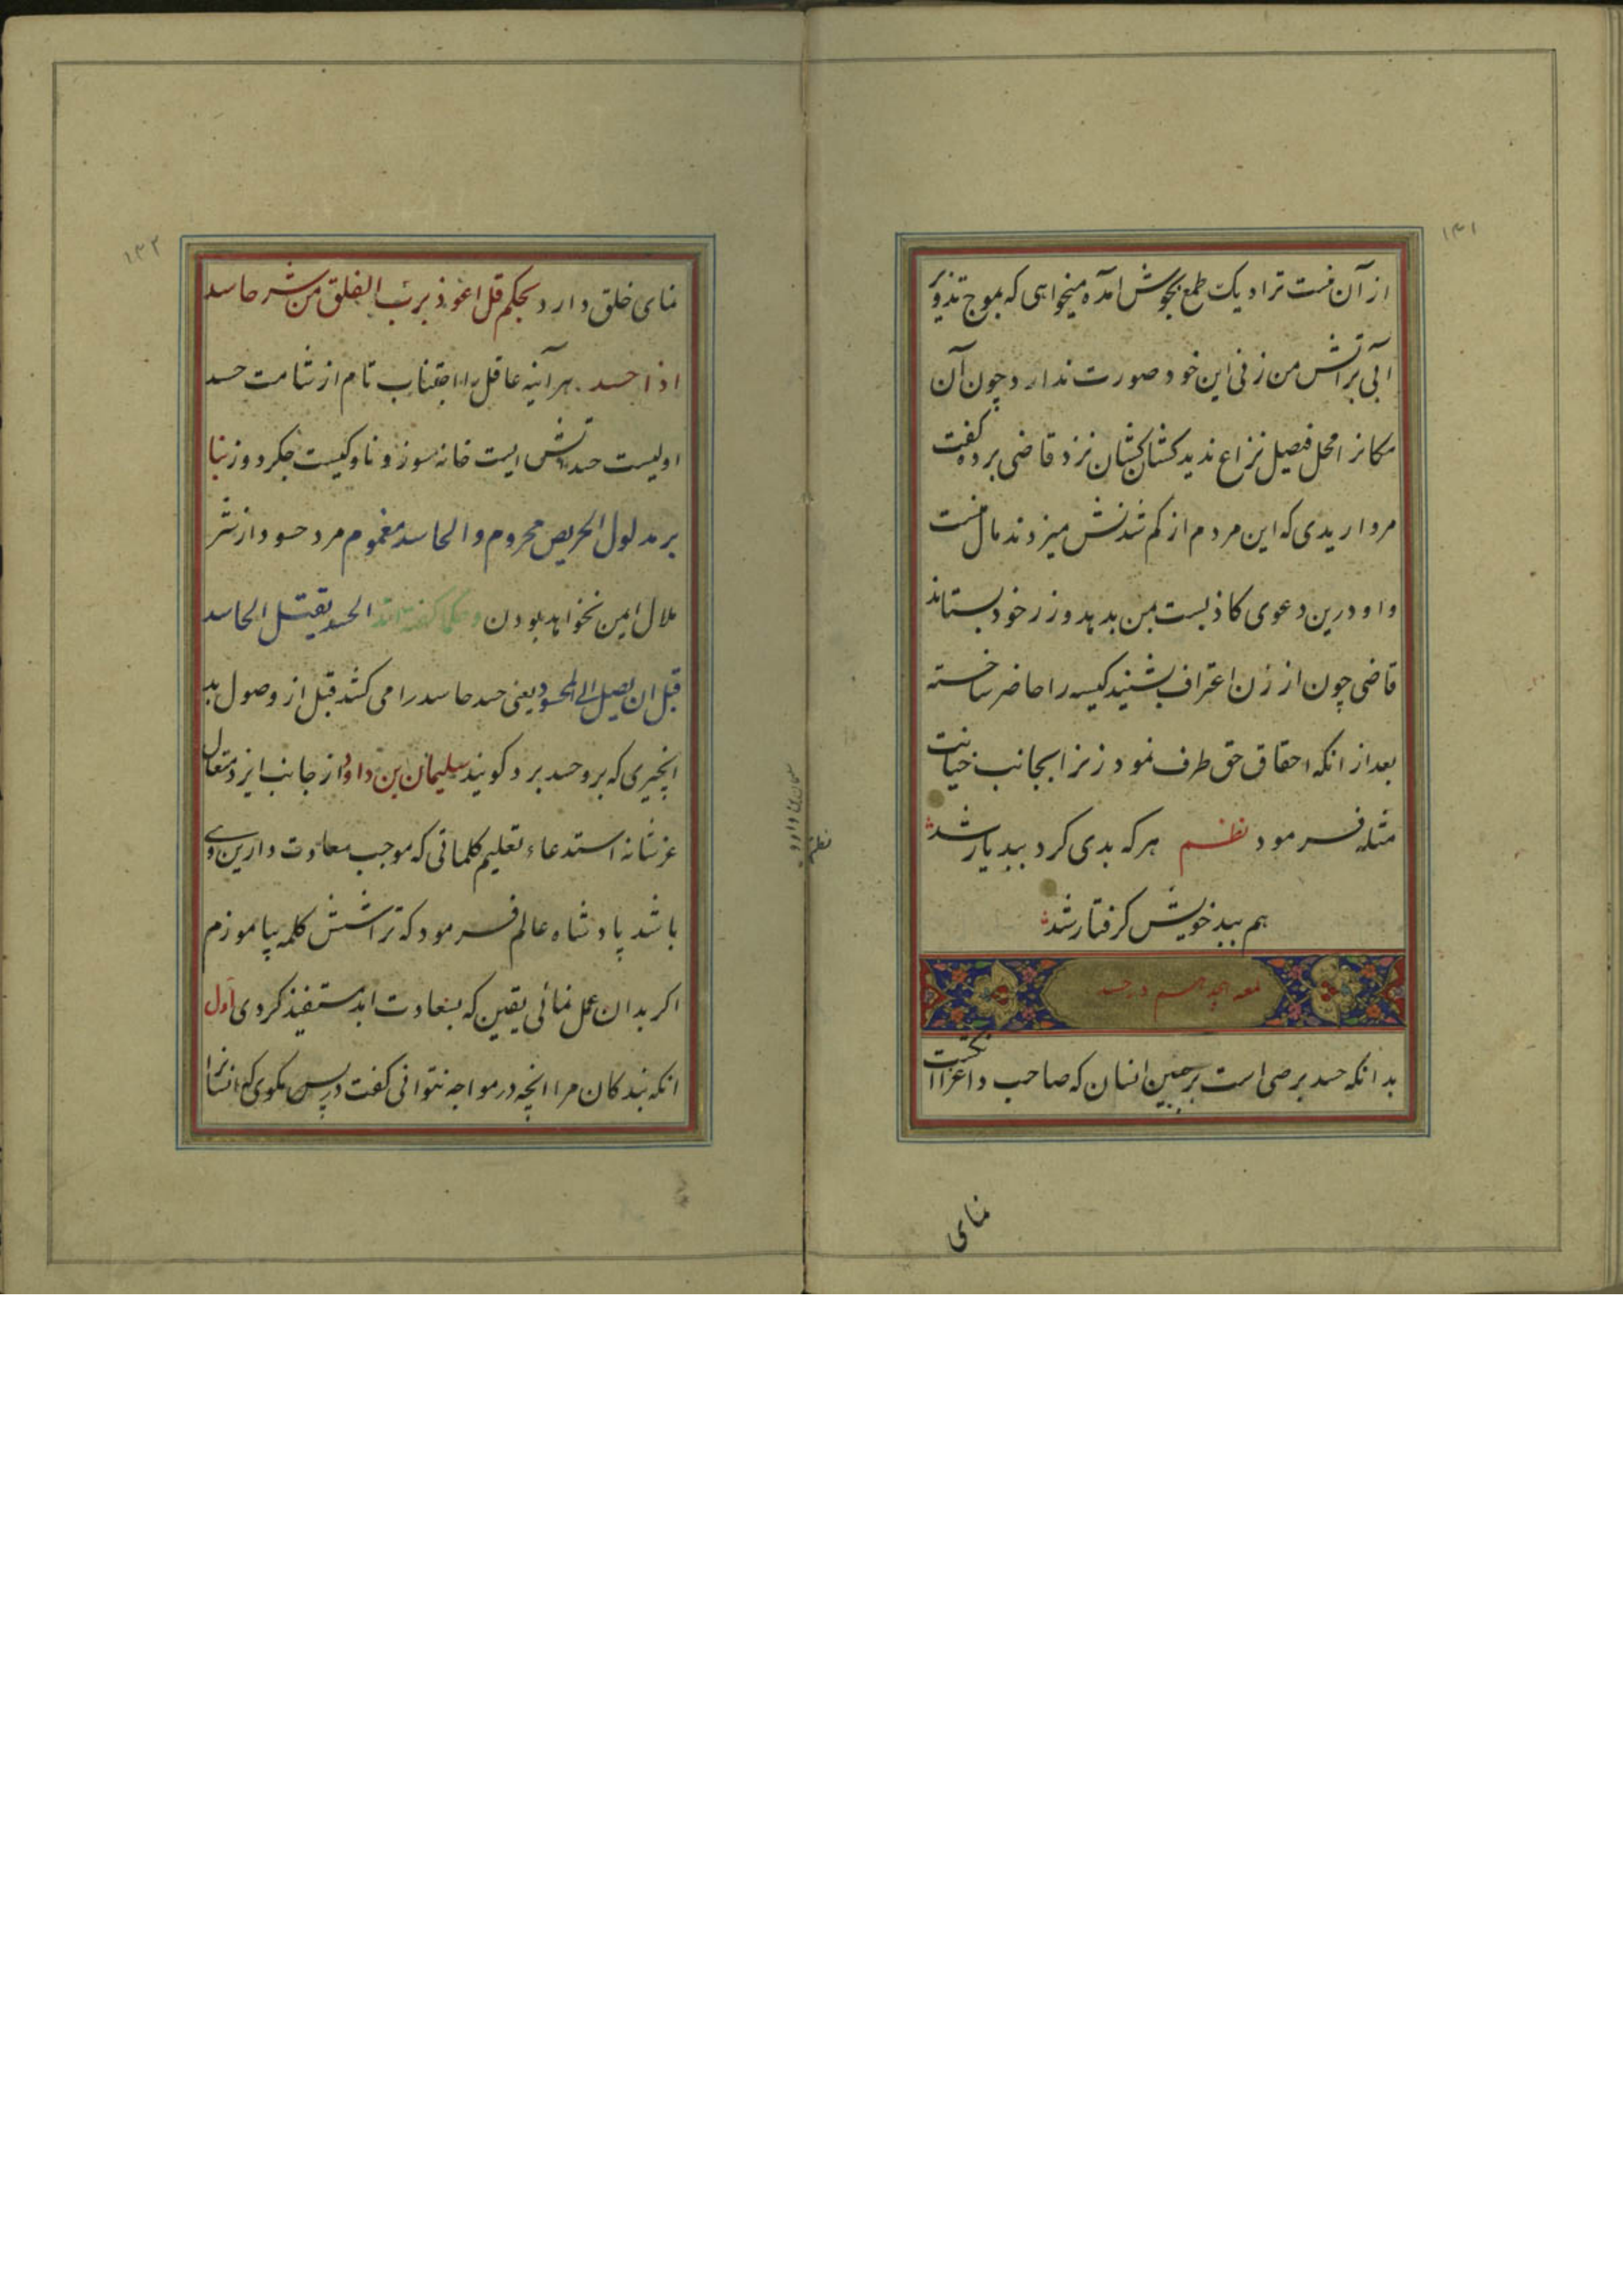 ۱۳۱
از آن منست ترا دیک طمع بجوش آمده میخواهی که بموج تذویر
آبی بر آتش من زنی این خود صورت ندارد چون آن
مکانرا محل فیصل نزاع ندید کشان کشان نزد قاضی برده کفت
مرواریدی که این مردم از کم شدنش میزدند مال منست
و او درین دعوی کاذبست بمن بدهد و زر خود بستاند
قاضی چون از زن اعتراف بشنید کیسه را حاضر ساخته
بعد از انکه احقاق حق طرف نمود زنرا بجانب خیانت
مثله فرمود نظم هر که بدی کرد ببد یار شد
هم ببد خویش کرفتار شد
در حسد
بدانکه حسد برصی است بر جبین انسان که صاحب داعزا انکشت
نمای
۱۳۲
نمای خلق دارد بحکم قل اعوذ برب الفلق من شر حاسد
اذا حسد هر آینه عاقل را اجتناب تام از شامت حسد
اولیست حسد آتش ایست خانه سوز و ناوکیست جکر دوز بنا
بر مدلول الحریص محروم و الحاسد مغموم مرد حسود از شر
ملال ایمن نخواهد بودن و حکما کفته اند الحسد یقتل الحاسد
قبل ان یصل الی المحسود یعنی حسد حاسد را می کشد قبل از وصول بد
انچیزی که برو حسد برد کویند سلیمان بن داود از جانب ایزد متعال
عز شانه استدعاء تعلیم کلماتی که موجب سعادت دارین وی
باشد پادشاه عالم فرمود که ترا شش کلمه بیاموزم
اکر بدان عمل نمائی یقین که بسعادت ابد مستفیذ کردی اول
انکه بندکان مرا انچه در مواجه نتوانی کفت در پس مکوی که انسانرا
سلیمان بن داود
نظم